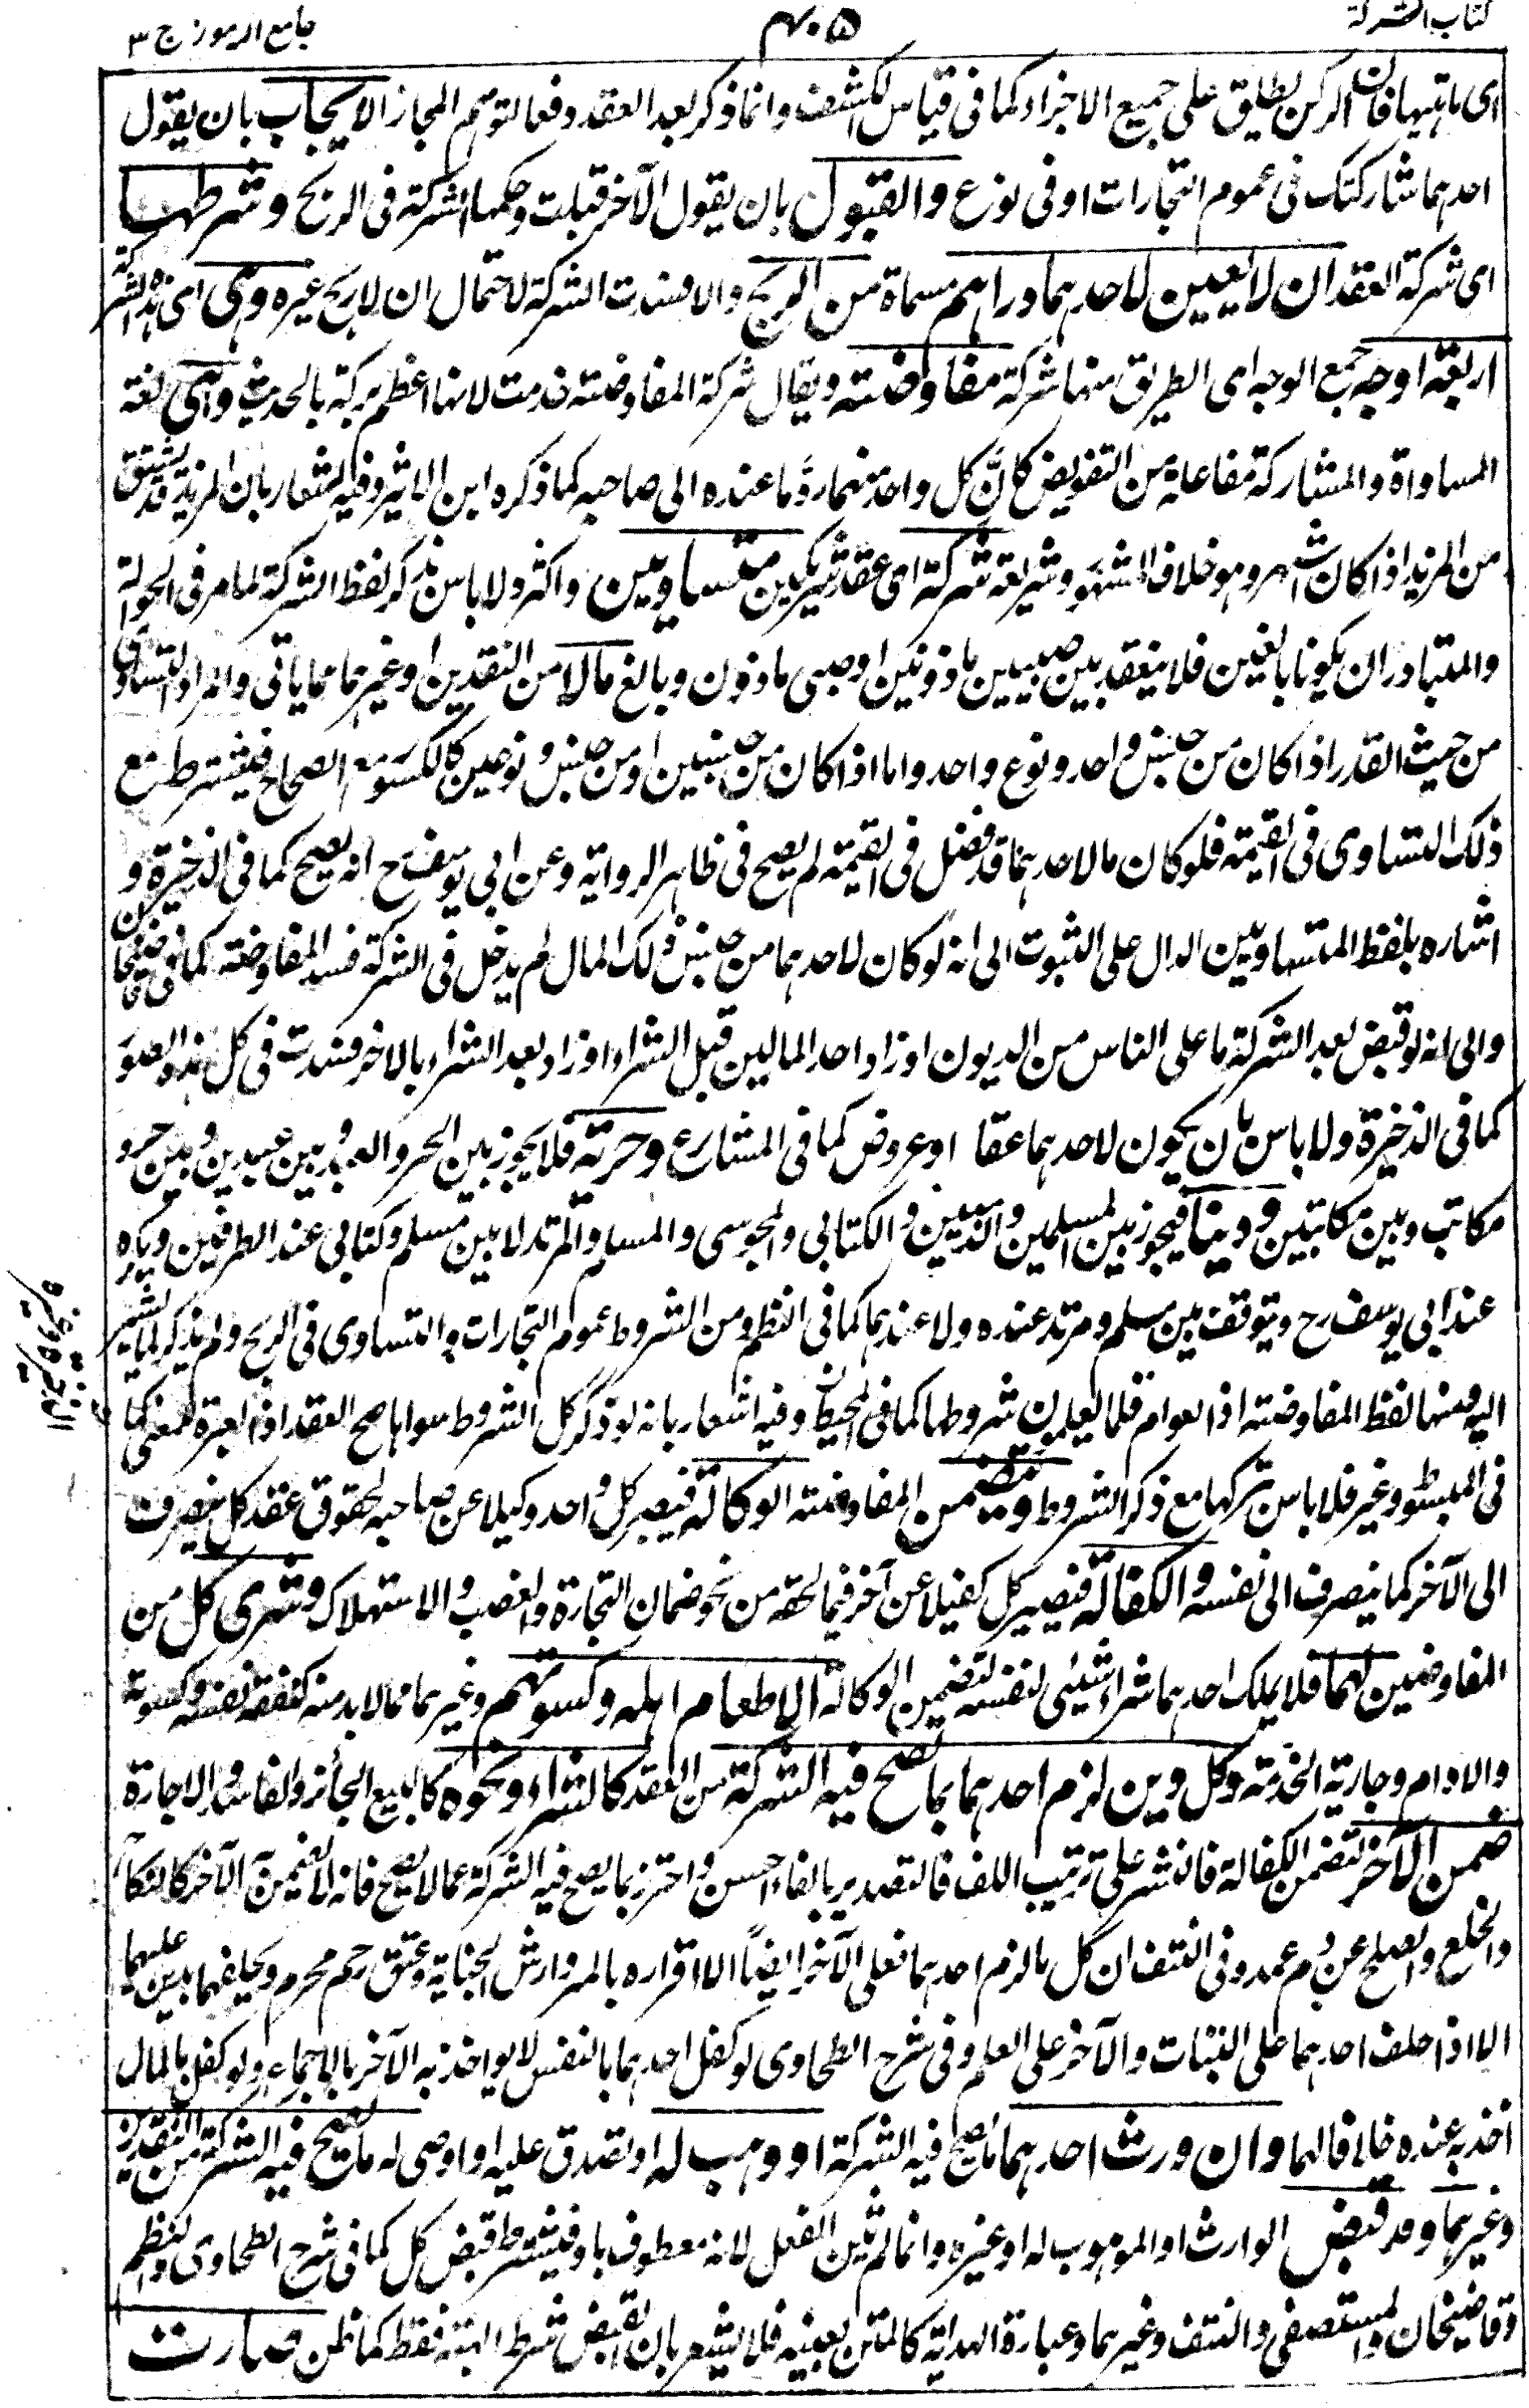 كتاب الشركة
٤٠٥
جامع الرموز ج ٣
اى ماهيتها فان الركن يطلق على جميع الاجزاء كما فى قياس الكشف وانما ذكر بعد العقد دفعا لتوهم المجاز الايجاب بان يقول
احدهما شاركتك فى عموم التجارات او فى نوع والقبول بان يقول الآخر قبلت وحكمها الشركة فى الربح وشرطها
اى شركة العقد ان لا يعين لاحدهما دراهم مسماة من الربح والا فسدت الشركة لاحتمال ان لا ربح غيره وهى اى هذه الشركة
اربعة اوجه جمع الوجه اى الطريق منها شركة مفاوضة ويقال شركة المفاوضة قدمت لانها اعظم بركة بالحديث وهى لغة
المساواة والمشاركة مفاعلة من التفويض كأنّ كل واحد منهما ردّ ما عنده الى صاحبه كما ذكره ابن الاثير وفيه اشعار بان المزيد قد يشتق
من المزيد اذا كان اشهر وهو خلاف المشهور وشريعة شركة اى عقد شريكين متساويين واكثر ولا باس بذكر لفظ الشركة لما مر فى الحوالة
والمتبادر ان يكونا بالغين فلا ينعقد بين صبيين ماذونين او صبى ماذون وبالغ مالا من النقدين او غيرهما مما ياتى والمراد التساوى
من حيث القدر اذا كان من جنس واحد ونوع واحد واما اذا كان من جنسين او من جنس ونوعين كالكسور مع الصحاح فيشترط مع
ذلك التساوى فى القيمة فلو كان مالا لاحدهما قد فضل فى القيمة لم يصح فى ظاهر الرواية وعن ابى يوسف رح انه يصح كما فى الذخيرة و
اشاره بلفظ المتساويين الدال على الثبوت الى انه لو كان لاحدهما من جنس ذلك المال لم يدخل فى الشركة فسد المفاوضة كما فى قاضيخان
والى انه لو قبض بعد الشركة ما على الناس من الديون او زاد احد المالين قبل الشراء او زاد بعد الشراء بالآخر فسدت فى كل هذه الصور
كما فى الذخيرة ولا باس بان يكون لاحدهما عقا او عروض كما فى المشارع وحرية فلا يجوز بين الحر والعبد وبين عبدين وبين حر و
مكاتب وبين مكاتبين ودينا فيجوز بين المسلمين والذميين والكتابى والمجوسى والمسلم والمرتد لا بين مسلم وكتابى عند الطرفين ويكره
عند ابى يوسف رح ويتوقف بين مسلم ومرتد عنده ولا عندهما كما فى النظم ومن الشروط عموم التجارات والتساوى فى الربح ولم يذكر لما يشير
اليه ومنها لفظ المفاوضة اذ العوام قلما يعلمون شروطها كما فى المحيط وفيه اشعار بانه لو ذكر كل الشروط سواها صح العقد اذ العبرة للمعنى كما
فى المبسوط وغيره فلا باس بتركها مع ذكر الشروط وتتضمن المفاوضة الوكالة فيصير كل واحد وكيلا عن صاحبه لحقوق عقد كل ينصرف
الى الآخر كما ينصرف الى نفسه والكفالة فيصير كل كفيلا عن آخر فيما لحقه من نحو ضمان التجارة والغصب والاستهلاك وشرى كل من
المفاوضين لهما فلا يملك احدهما شراء شيئ لنفسه لتضمن الوكالة الا طعام اهله وكسوتهم وغيرهما مما لا بد منه كنفقة نفسه وكسوته
والادام وجارية الخدمة وكل دين لزم احدهما بما تصح فيه الشركة من العقد كالشراء ونحوه كالبيع الجائز والفاسد والاجارة
ضمن الآخر لتضمن الكفالة فالنشر على ترتيب اللف فالتصدير بالفاء احسن واحترز بما يصح فيه الشركة عما لا يصح فانه لا يضمن الآخر كالنكاح
والخلع والصلح عن دم عمد وفى النتف ان كل ما لزم احدهما فعلى الآخر ايضاً الا اقراره بالمهر وارش الجناية وعتق رحم محرم ويحلفهما بدين عليهما
الا اذا حلف احدهما على البتات والآخر على العلم وفى شرح الطحاوى لو كفل احدهما بالنفس لا يواخذ به الآخر بالاجماع ولو كفل بالمال
اخذ به عنده خلافا لهما وان ورث احدهما ما تصح فيه الشركة او وهب له او تصدق عليه او اوصى له ما تصح فيه الشركة من النقدين
وغيرهما وقد قبض الوارث او الموهوب له او غيره وانما لم يثن الفعل لانه معطوف باو فيشترط قبض كل كما فى شرح الطحاوى والنظم
وقاضيخان والمستصفى والنتف وغيرهما وعبارة الهداية كالمتن بعينه فلا يشعر بان القبض شرط الهبة فقط كما ظن صارت